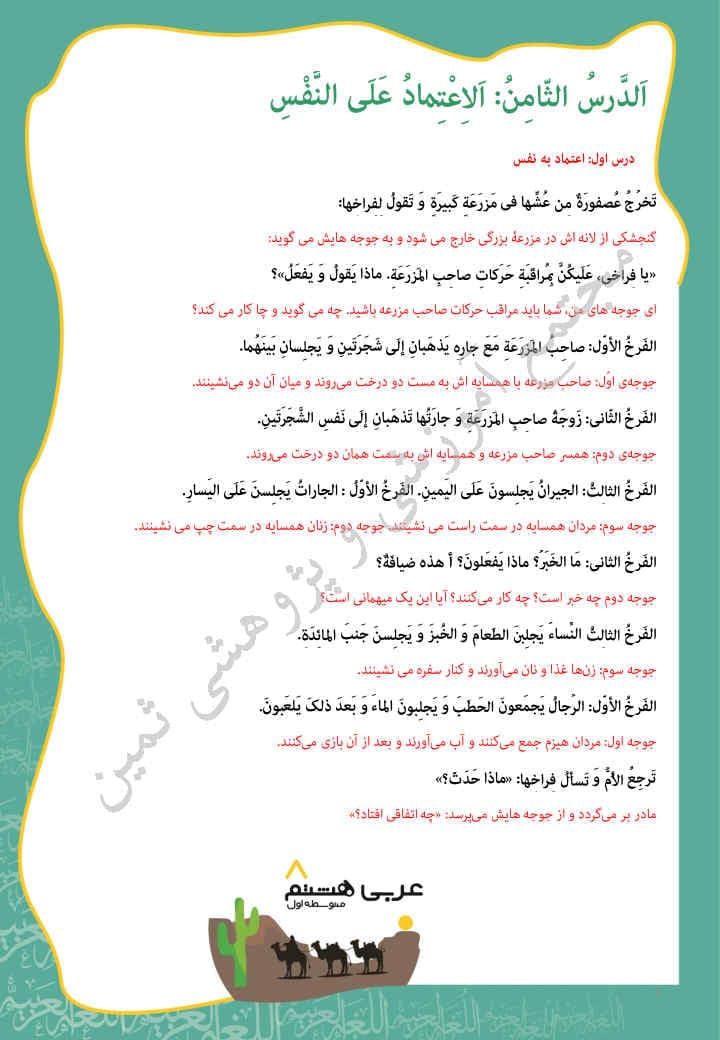 اَلدَّرسُ الثّامِنُ: اَلاِعْتِمادُ عَلَی النَّفْسِ
درس اول: اعتماد به نفس
تَخرَجُ عُصفورَةٌ مِن عُشِّها فی مَزرَعَةٍ کَبیرَةٍ وَ تَقولُ لِفِراخها:
گنجشکی از لانه اش در مزرعهٔ بزرگی خارج می شود و به جوجه هایش می گوید:
«یا فِراخی، عَلَیکُنَّ بِمُراقَبَةِ حَرَکاتِ صاحِبِ المَزرَعَةِ. ماذا یَقولُ وَ یَفعَلُ»؟
ای جوجه های من، شما باید مراقب حرکات صاحب مزرعه باشید. چه می گوید و چا کار می کند؟
الفَرخُ الأوّل: صاحِبُ المَزرَعَةِ مَعَ جارِهِ یَذهَبانِ إلَی شَجَرَتَینِ وَ یَجلِسانِ بَینَهُما.
جوجه‌ی اوّل: صاحب مزرعه با همسایه اش به مست دو درخت می‌روند و میان آن دو می‌نشینند.
الفَرخُ الثّانی: زَوجَةُ صاحِبِ المَزرَعَةِ وَ جارَتُها تَذهَبانِ إلَی نَفسِ الشَّجَرَتَینِ.
جوجه‌ی دوم: همسر صاحب مزرعه و همسایه اش به سمت همان دو درخت می‌روند.
الفَرخُ الثالِثُ: الجیرانُ یَجلِسونَ عَلَی الیَمینِ. الفَرخُ الأوّلُ : الجاراتُ یَجلِسنَ عَلَی الیَسارِ.
جوجه سوم: مردان همسایه در سمت راست می نشینند. جوجه دوم: زنان همسایه در سمت چپ می نشینند.
الفَرخُ الثانی: مَا الخَبَرُ؟ ماذا یَفعَلونَ؟ أ هذه ضیافَةٌ؟
جوجه دوم چه خبر است؟ چه کار می‌کنند؟ آیا این یک میهمانی است؟
الفَرخُ الثالِثُ النِّساءَ یَجلِبنَ الطَعامَ وَ الخُبزَ وَ یَجلِسنَ جَنبَ المائِدَةِ.
جوجه سوم: زن‌ها غذا و نان می‌آورند و کنار سفره می نشینند.
الفَرخُ الأوّل: الرّجالُ یَجمَعونَ الحَطَبَ وَ یَجلِبونَ الماءَ وَ بَعدَ ذلکَ یَلعَبونَ.
جوجه اول: مردان هیزم جمع می‌کنند و آب می‌آورند و بعد از آن بازی می‌کنند.
تَرجِعُ الأمُّ وَ تَسألُ فِراخِها: «ماذا حَدَثَ؟»
مادر بر می‌گردد و از جوجه هایش می‌پرسد: «چه اتفاقی افتاد؟»
مجتمع آموزشی و پژوهشی ثمین
۸
عربی هشتم
متوسطه اول